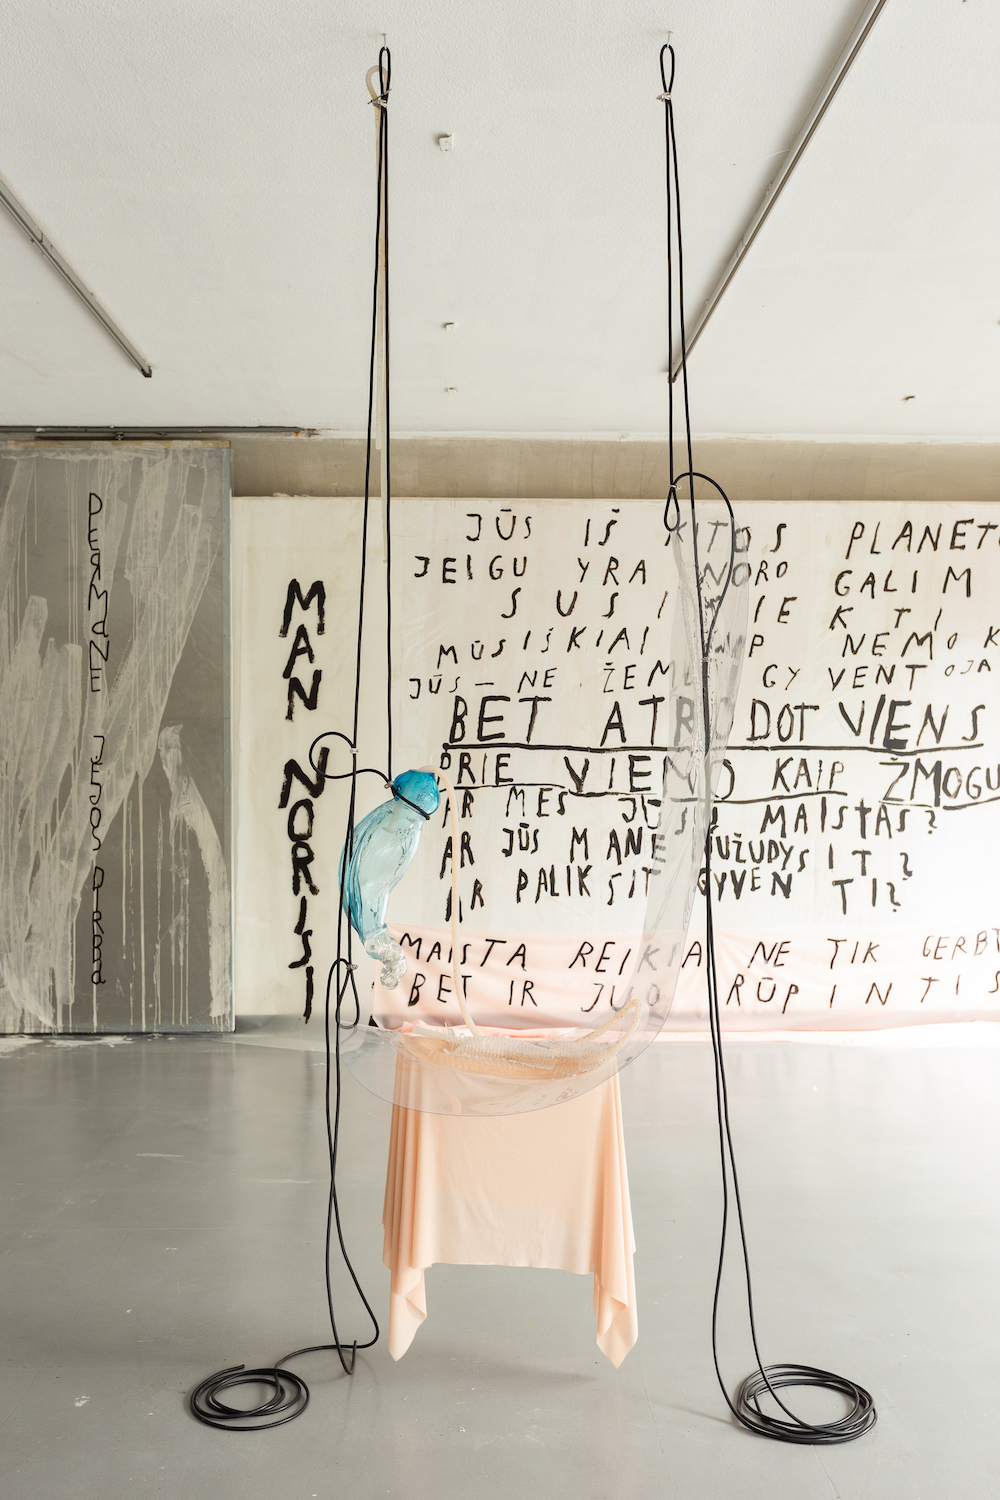 PERMANE JĖGOS DIRBA
MAN NORISI
JŪS IŠ KITOS PLANETO
JEIGU YRA NORO GALIM
SUSI IEKTI
MŪSIŠKIAI NEMOK
JŪS — NE ŽEM GYVENTOJA
BET ATRODOT VIENS
PRIE VIENO KAIP ŽMOGU
AR MES JŪSŲ MAISTAS?
AR JŪS MANE NUŽUDYSIT?
AR PALIKSIT GYVENTI?
MAISTĄ REIKIA NE TIK GERBT
BET IR JUO RŪPINTIS